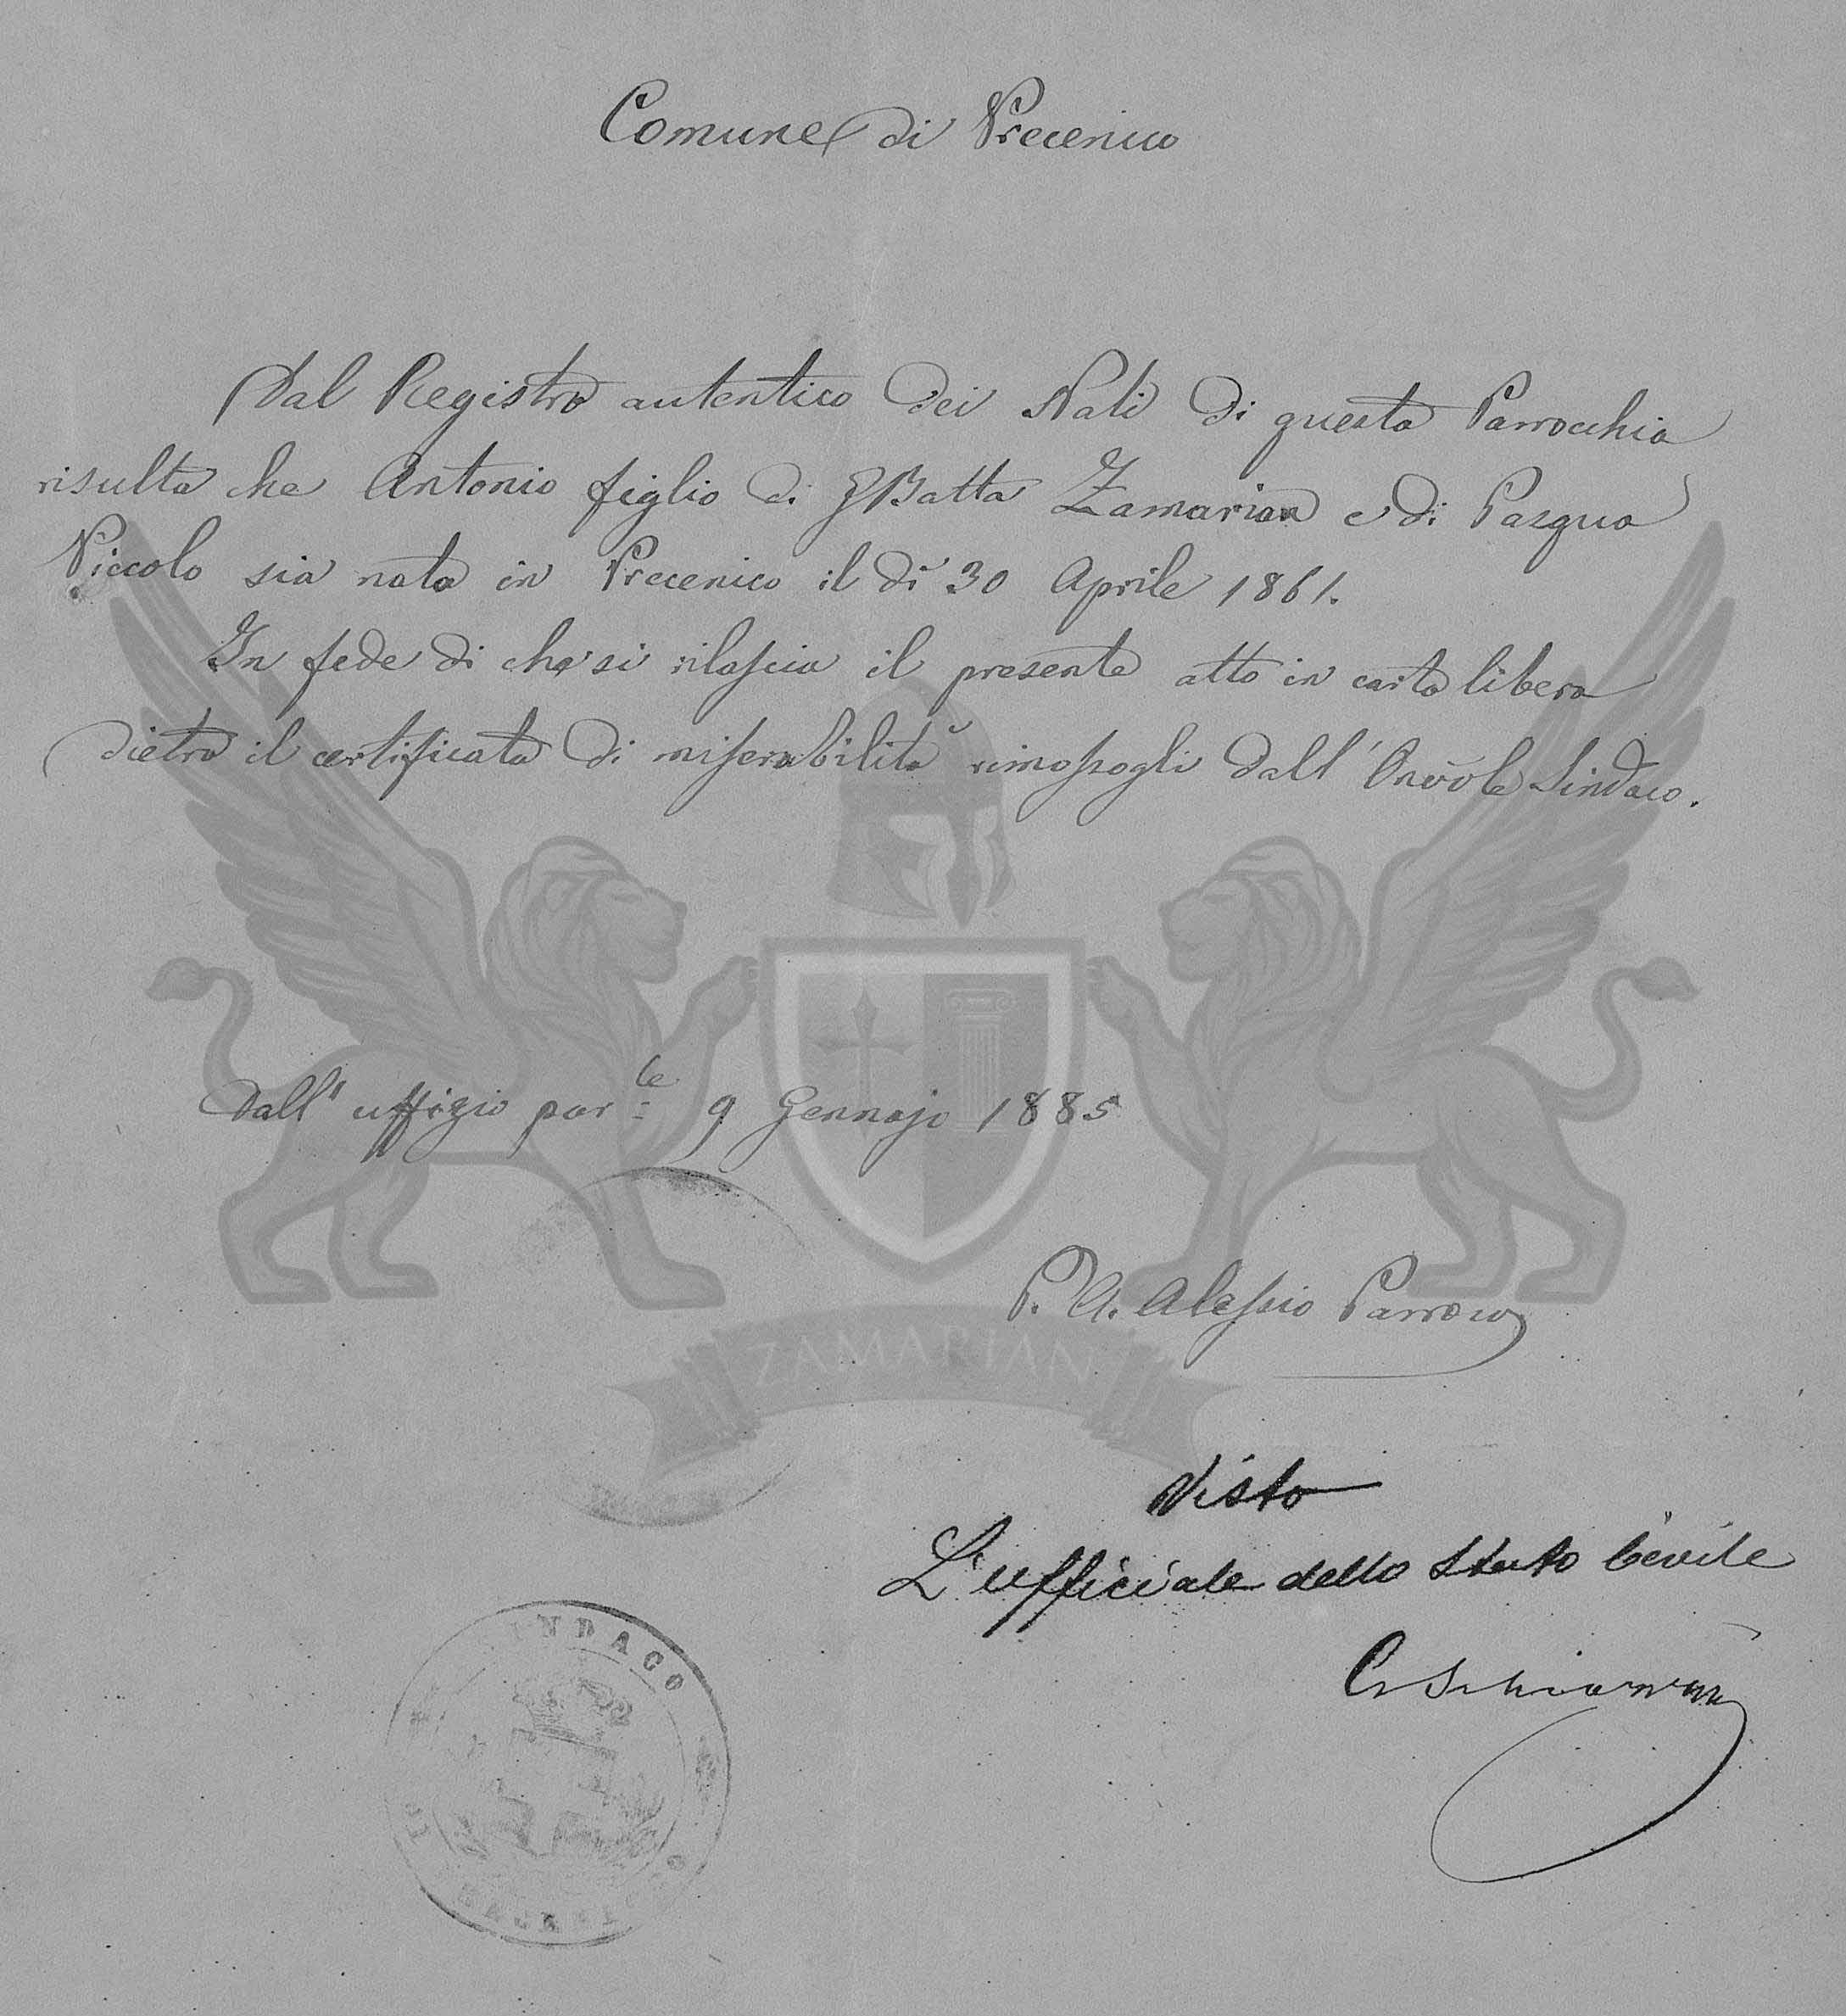 Comune di Precenico
Dal Registro autentico dei Nati di questa Parrocchia
risulta che Antonio figlio di GBatta Zamarian e di Pasqua
Piccolo sia nato in Precenico il dì 30 Aprile 1861.
In fede di che si rilascia il presente atto in carta libera
dietro il certificato di miserabilità rimossogli dall' Onevole Sindaco.
Dall' uffizio par.le 9 Gennajo 1885
P. A. Alessio Parroco
ZAMARIAN
Visto
L'ufficiale dello Stato Civile
SINDACO